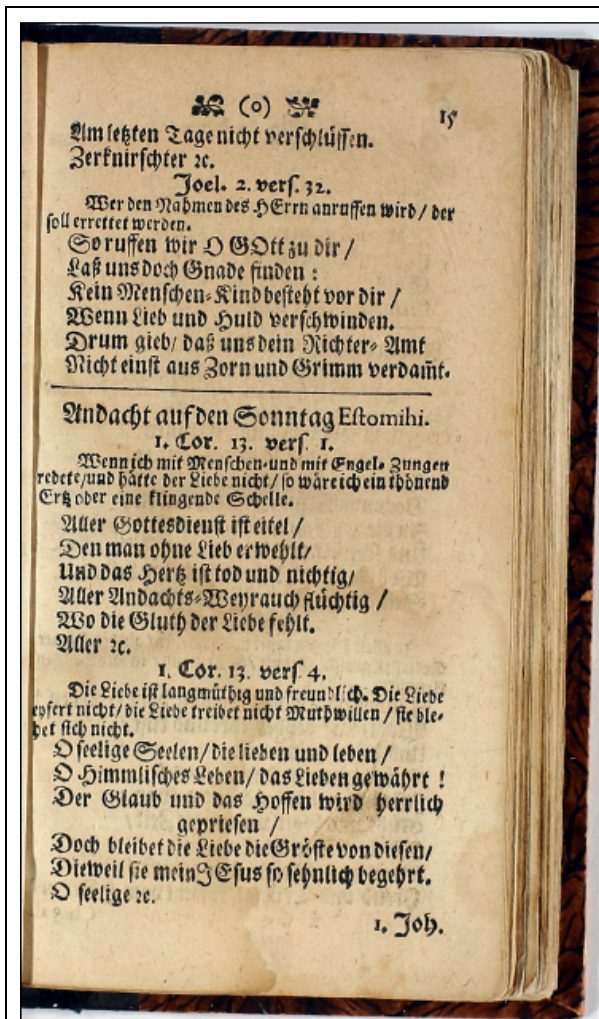 (o) 15
Am letzten Tage nicht verschlüssen.
Zerknirschter ꝛc.
Joel. 2. vers. 32.
Wer den Nahmen des HErrn anruffen wird / der
soll errettet werden.
So ruffen wir O GOtt zu dir /
Laß uns doch Gnade finden :
Kein Menschen-Kind besteht vor dir /
Wenn Lieb und Huld verschwinden.
Drum gieb / daß uns dein Richter-Amt
Nicht einst aus Zorn und Grimm verdam̃t.
Andacht auf den Sonntag Estomihi.
1. Cor. 13. vers. 1.
Wenn ich mit Menschen-und mit Engel-Zungen
redete/und hätte der Liebe nicht/ so wäre ich ein thönend
Ertz oder eine klingende Schelle.
Aller Gottesdienst ist eitel /
Den man ohne Lieb erwehlt/
Und das Hertz ist tod und nichtig/
Aller Andachts-Weyrauch flüchtig /
Wo die Gluth der Liebe fehlt.
Aller ꝛc.
1. Cor. 13. vers 4.
Die Liebe ist langmüthig und freundlich. Die Liebe
eyfert nicht/ die Liebe treibet nicht Muthwillen / sie ble-
het sich nicht.
O seelige Seelen/ die lieben und leben /
O Himmlisches Leben/ das Lieben gewährt !
Der Glaub und das Hoffen wird herrlich
gepriesen /
Doch bleibet die Liebe die Gröste von diesen/
Dieweil sie mein JEsus so sehnlich begehrt.
O seelige ꝛc.
1. Joh.